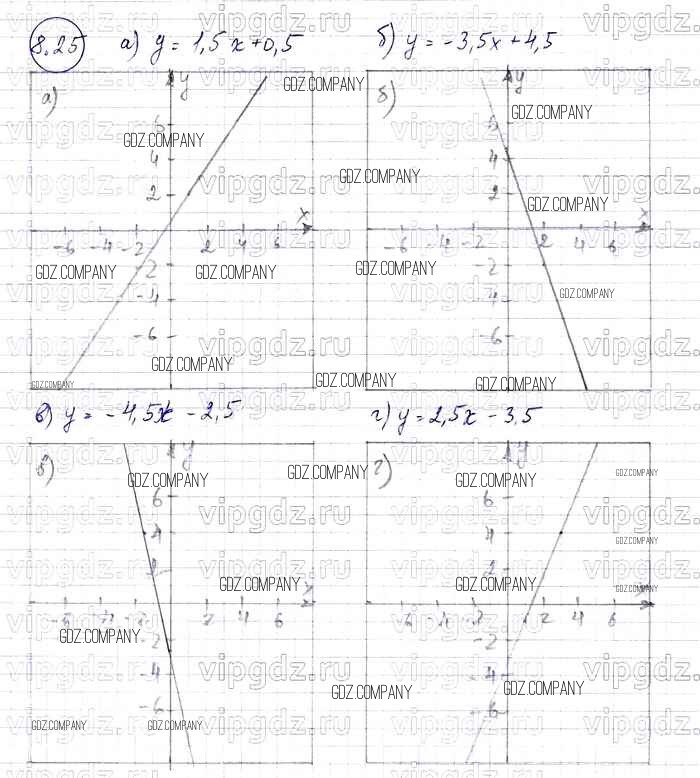 8.25 а) y = 1,5x+0,5 б) y = -3,5x+4,5
а) y
6
4
2
x
-6 -4 -2 2 4 6
-2
-4
-6
б) y
6
4
2
x
-6 -4 -2 2 4 6
-2
-4
-6
в) y = -4,5x - 2,5 г) y = 2,5x - 3,5
в) y
6
4
2
x
-6 -2 2 4 6
-2
-4
-6
г) y
6
4
2
x
-6 -4 -2 2 4 6
-2
-4
-6
GDZ.COMPANY
vipgdz.ru